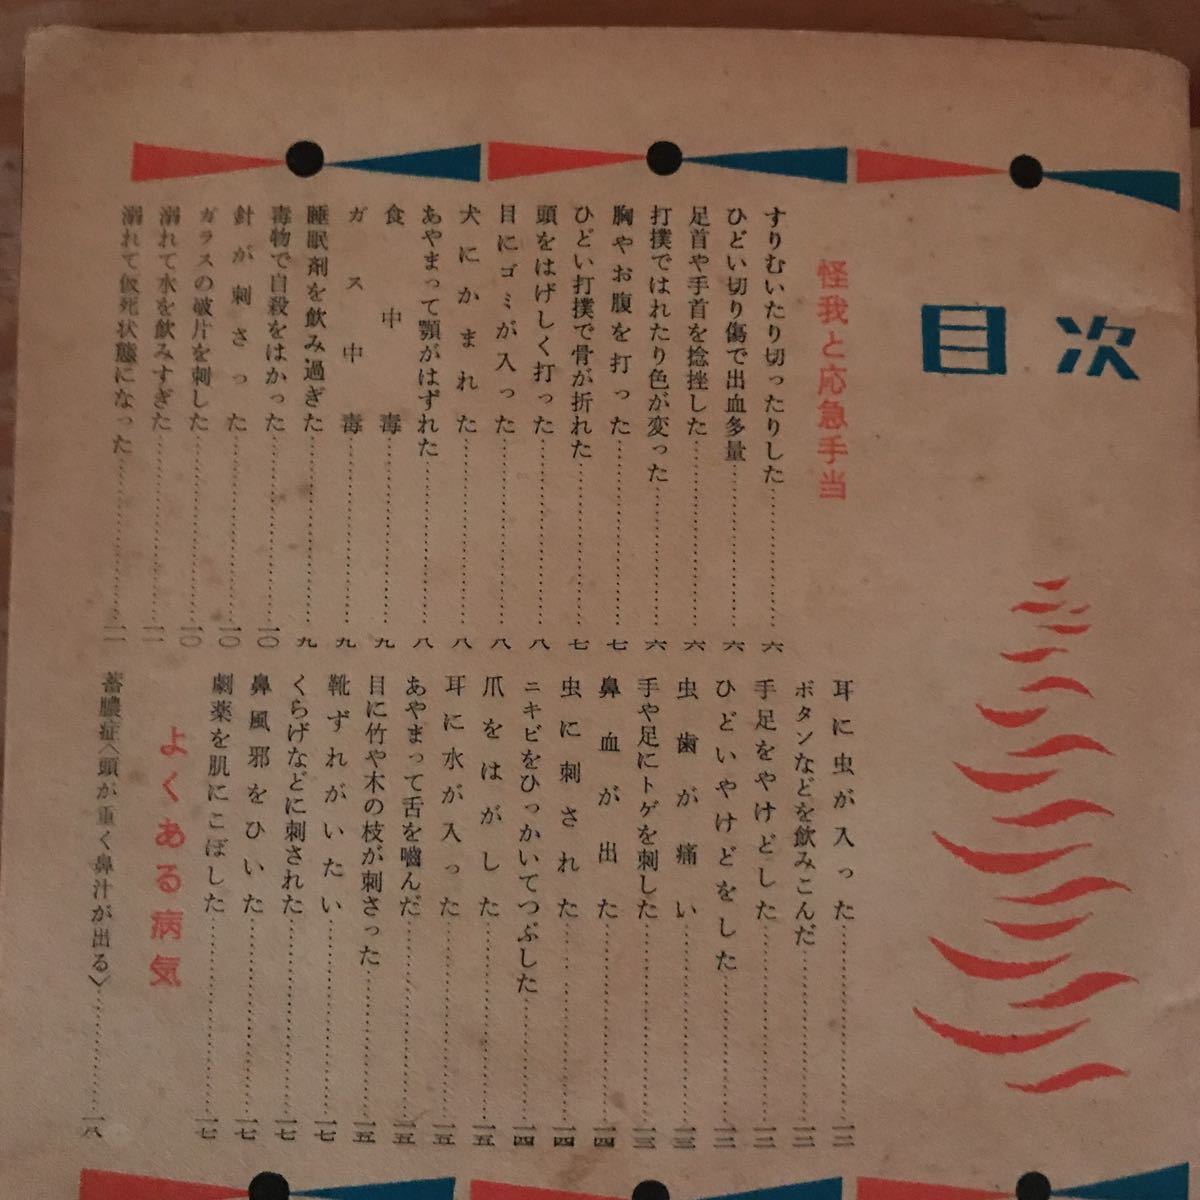 目次
怪我と応急手当
すりむいたり切ったりした…………六
ひどい切り傷で出血多量…………六
足首や手首を捻挫した…………六
打撲ではれたり色が変った…………六
胸やお腹を打った…………七
ひどい打撲で骨が折れた…………七
頭をはげしく打った…………八
目にゴミが入った…………八
犬にかまれた…………八
あやまって顎がはずれた…………八
食中毒…………九
ガス中毒…………九
睡眠剤を飲み過ぎた…………九
毒物で自殺をはかった…………一〇
針が刺さった…………一〇
ガラスの破片を刺した…………一〇
溺れて水を飲みすぎた…………一一
溺れて仮死状態になった…………一一
耳に虫が入った…………一二
ボタンなどを飲みこんだ…………一二
手足をやけどした…………一二
ひどいやけどをした…………一二
虫歯が痛い…………一三
手や足にトゲを刺した…………一三
鼻血が出た…………一四
虫に刺された…………一四
ニキビをひっかいてつぶした…………一四
爪をはがした…………一五
耳に水が入った…………一五
あやまって舌を嚙んだ…………一五
目に竹や木の枝が刺さった…………一五
靴ずれがいたい…………一七
くらげなどに刺された…………一七
鼻風邪をひいた…………一七
劇薬を肌にこぼした…………一七
よくある病気
蓄膿症〈頭が重く鼻汁が出る〉…………一八